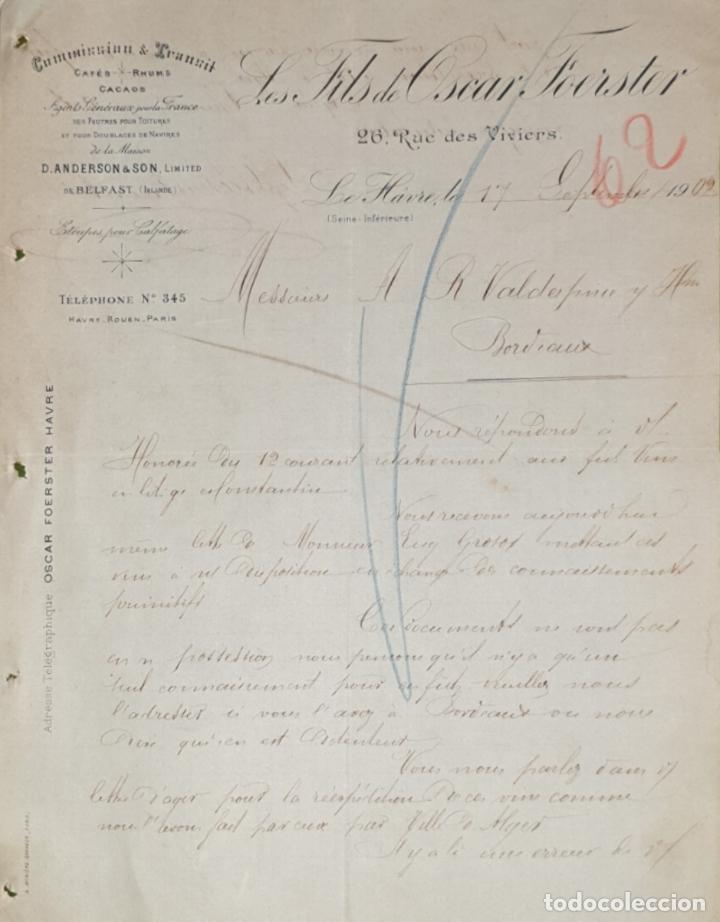 Commission & Transit
CAFÉS - RHUMS
CACAOS
Agents Généraux pour la France
DES FEUTRES POUR TOITURES
ET POUR DOUBLAGES DE NAVIRES
de la Maison
D. ANDERSON & SON, LIMITED
DE BELFAST (IRLANDE)
Etoupes pour Calfatage
TÉLÉPHONE No 345
HAVRE - ROUEN - PARIS
Adresse Télégraphique OSCAR FOERSTER HAVRE
Les Fils de Oscar Foerster
26, Rue des Viviers.
62
Le Hâvre, le 17 Septembre 1902
(Seine-Inférieure)
Messieurs A R Valdespino y Hno
Bordeaux
Nous répondons à V/
Honorée du 12 courant relativement aux fûts Vins
en litige
Nous recevons aujourd'hui
même lettre de Monsieur mettant ces
vins à n/ Disposition en change des connaissements
primitifs
Ces documents ne sont pas
en n/ possession, nous pensons qu'il n'y a qu'un
seul connaissement pour ces fûts, veuillez nous
l'adresser si vous l'avez à Bordeaux ou nous
Dire qui en est Détenteur
Vous nous parlez dans V/
lettre d'agir pour la réexpédition De ces vins comme
nous l'avons fait par eux par Ville de Alger
Il y a là une erreur de V/
todocoleccion